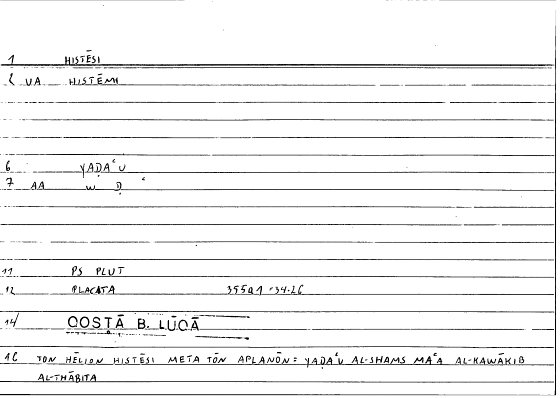 1 HISTĒSI
2 UA HISTĒMI
6 YAḌAʿU
7 AA W Ḍ ʿ
11 PS PLUT
12 PLACATA 355a1-34.26
14 QOSṬĀ B. LŪQĀ
16 TON HĒLION HISTĒSI META TŌN APLANŌN = YAḌAʿU AL-SHAMS MAʿA AL-KAWĀKIB
AL-THĀBITA